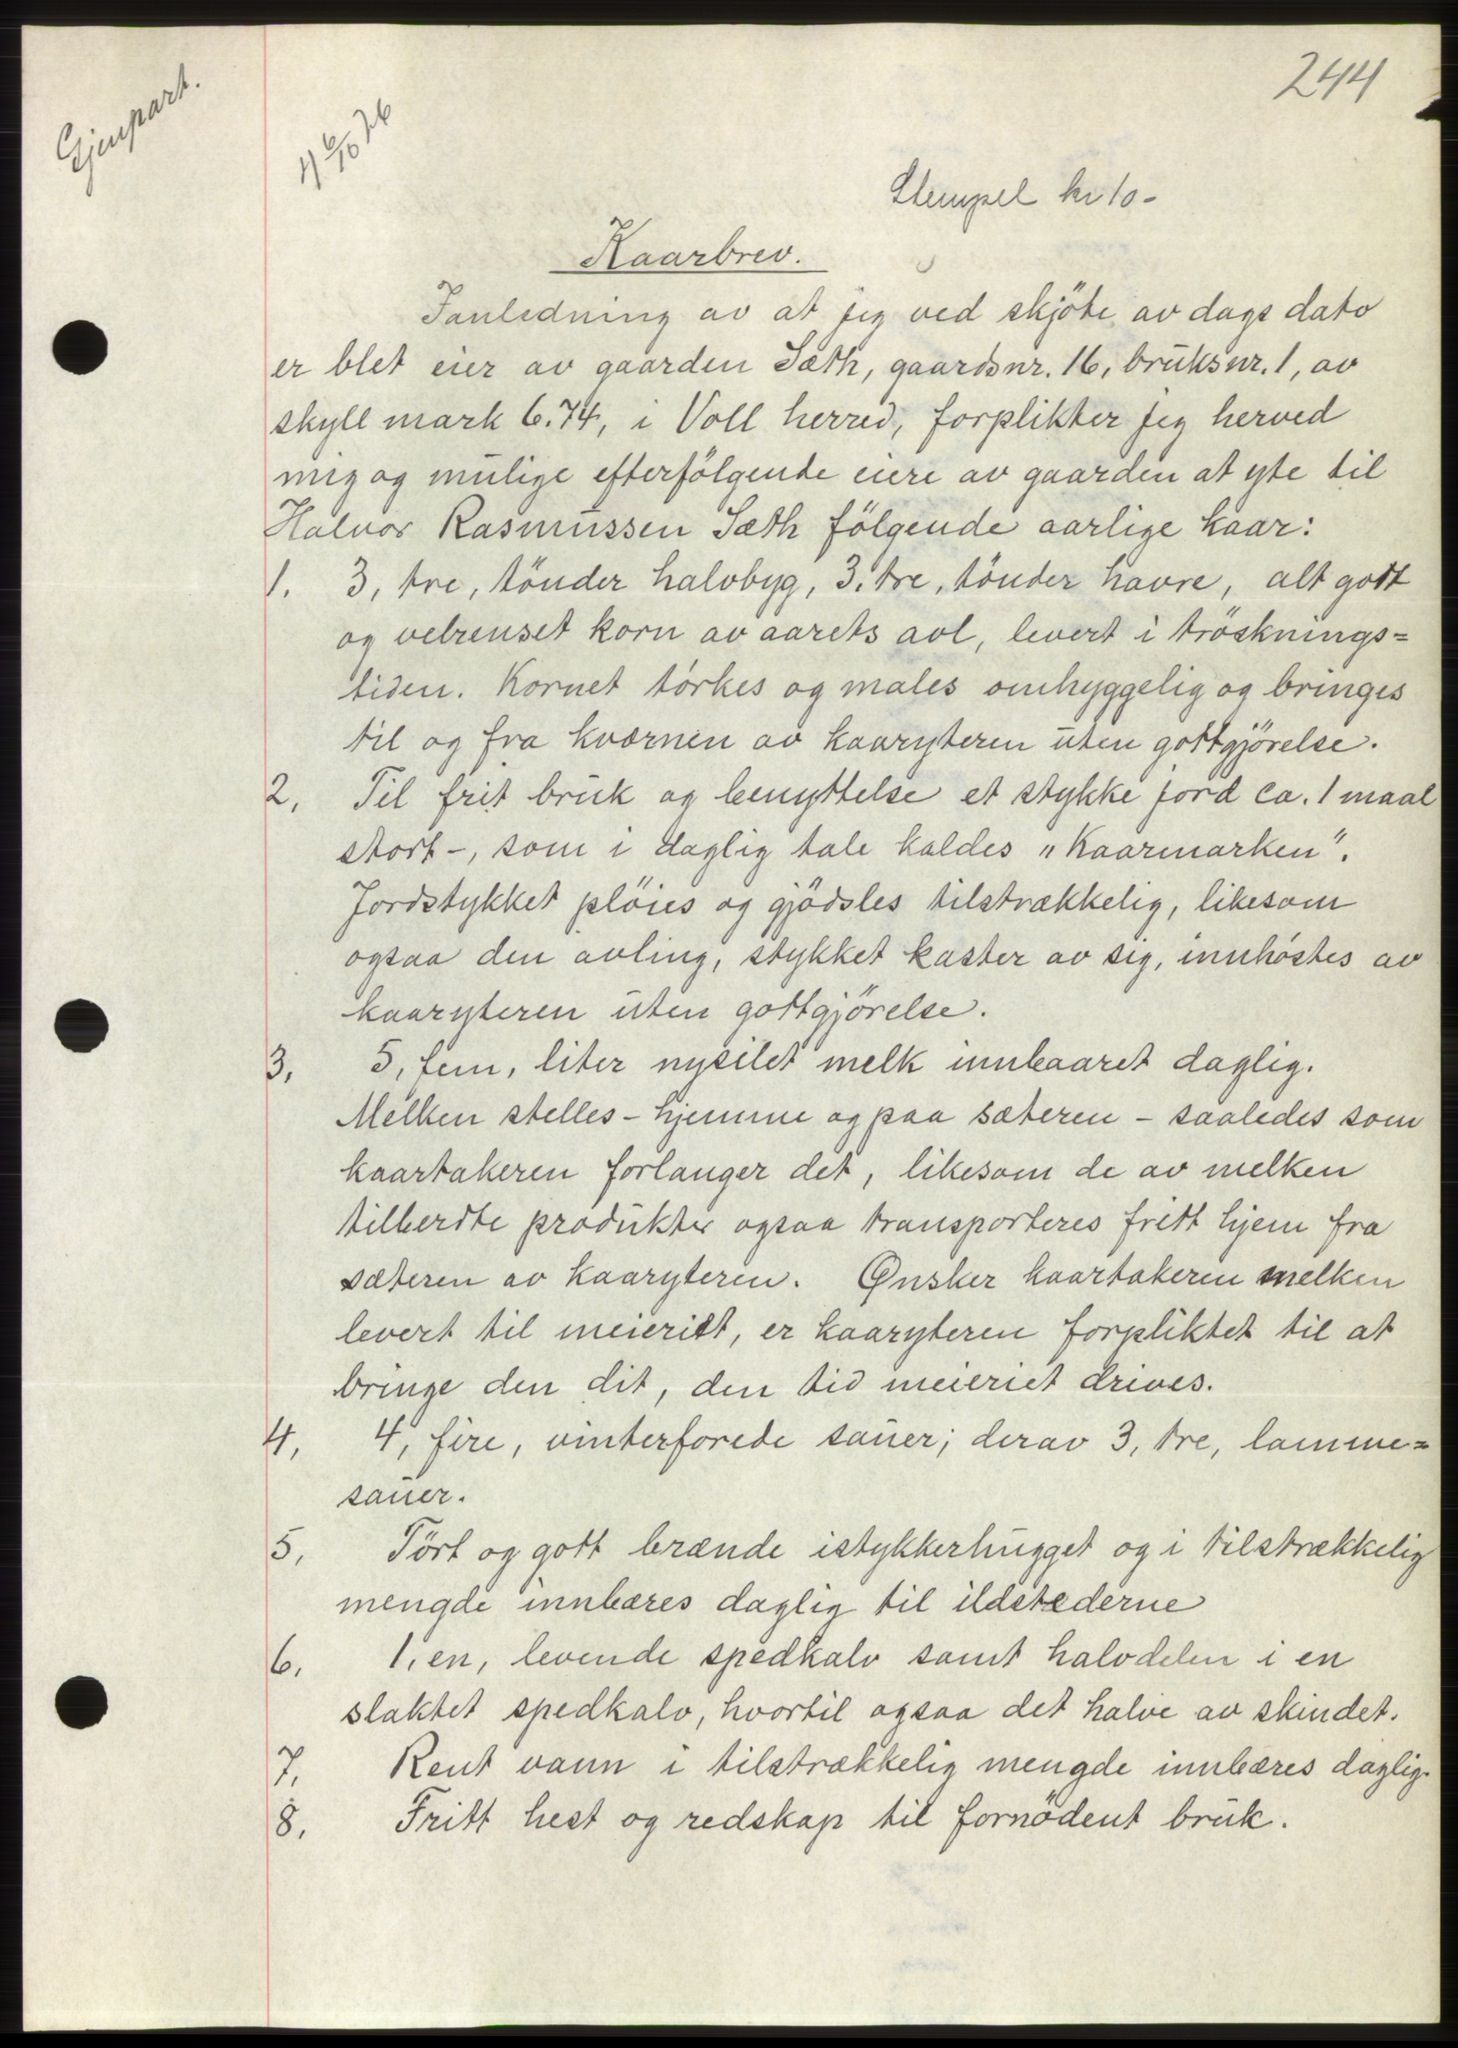 244
Gjenpart.
6/10 26
Stempel kr 10-
Kaarbrev.
Ianledning av at jeg ved skjöte av dags dato
er blet eier av gaarden Sæth, gaardsnr. 16, bruksnr. 1, av
skyll mark 6.74, i Voll herred, forplikter jeg herved
mig og mulige efterfölgende eiere av gaarden at yte til
Halvor Rasmussen Sæth fölgende aarlige kaar:
1. 3, tre, tönder halvbyg, 3, tre, tönder havre, alt gott
og velrenset korn av aarets avl, levert i trösknings=
tiden. Kornet törkes og males omhyggelig og bringes
til og fra kværnen av kaaryteren uten gottgjörelse.
2. Til frit bruk og benyttelse et stykke jord ca. 1 maal
stort-, som i daglig tale kaldes "Kaarmarken".
Jordstykket plöies og gjödsles tilstrækkelig, likesom
ogsaa den avling, stykket kaster av sig, innhöstes av
kaaryteren uten gottgjörelse.
3, 5, fem, liter nysilet melk innbaaret daglig.
Melken stelles - hjemme og paa sæteren - saaledes som
kaartakeren forlanger det, likesom de av melken
tilberdte produkter ogsaa transporteres fritt hjem fra
sæteren av kaaryteren. Ønsker kaartakeren melken
levert til meieriet, er kaaryteren forpliktet til at
bringe den dit, den tid meieriet drives.
4, 4, fire, vinterforede sauer; derav 3, tre, lamme=
sauer.
5, Tört og gott brænde istykkerhugget og i tilstrækkelig
mengde innbæres daglig til ildstederne
6, 1, en, levende spedkalv samt halvdelen i en
slaktet spedkalv, hvortil ogsaa det halve av skindet.
7, Rent vann i tilstrækkelig mengde innbæres daglig.
8, Fritt hest og redskap til fornödent bruk.